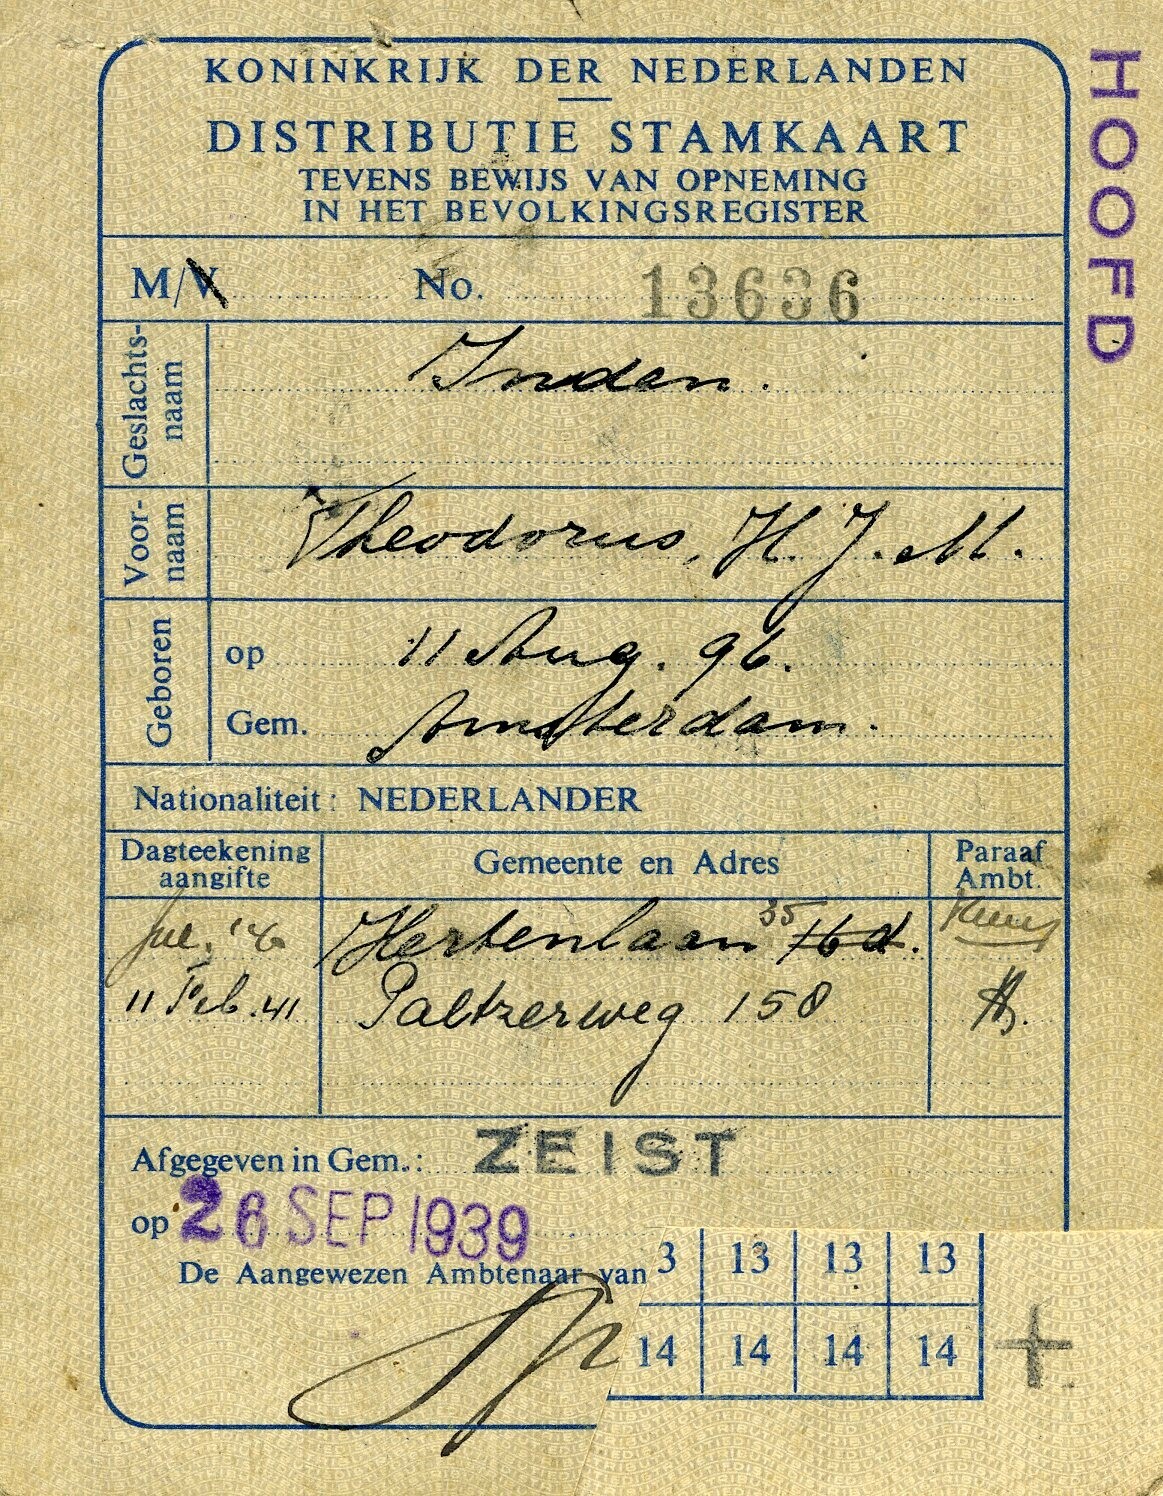 KONINKRIJK DER NEDERLANDEN
DISTRIBUTIE STAMKAART
TEVENS BEWIJS VAN OPNEMING
IN HET BEVOLKINGSREGISTER
HOOFD
M/V No. 13636
Geslachts-
naam
Inden.
Voor-
naam
Theodorus, H. J. M.
Geboren
op 11 Aug. 96.
Gem. Amsterdam.
Nationaliteit: NEDERLANDER
Dagteekening
aangifte
Gemeente en Adres
Paraaf
Ambt.
Hertenlaan 35 16 d.
11 Feb. 41 Paltzerweg 158
Afgegeven in Gem.: ZEIST
op 26 SEP 1939
De Aangewezen Ambtenaar van
3 13 13 13
14 14 14 14
+